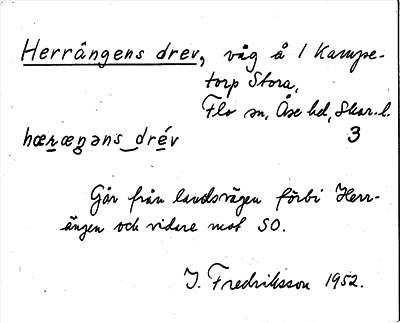 Herrängens drev, väg å 1 Kampe-
torp Stora,
Flo sn, Åse hd, Skar. l.
hæræŋəns drév 3
Går från landsvägen förbi Herr-
ängen och vidare mot SO.
I. Fredriksson 1952.